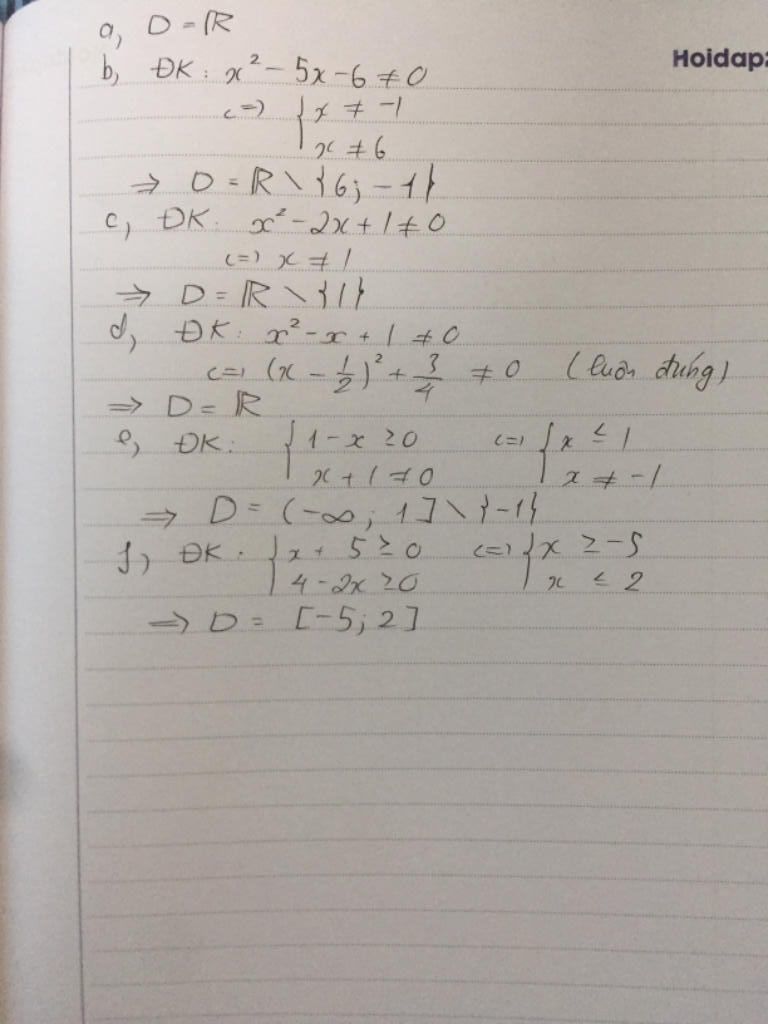 a, D = ℝ
Hoidap2
b, ĐK: x² - 5x - 6 ≠ 0
<=> { x ≠ -1
x ≠ 6
=> D = ℝ \ {6; -1}
c, ĐK: x² - 2x + 1 ≠ 0
<=> x ≠ 1
=> D = ℝ \ {1}
d, ĐK: x² - x + 1 ≠ 0
<=> (x - 1/2)² + 3/4 ≠ 0 (luôn đúng)
=> D = ℝ
e, ĐK: { 1 - x ≥ 0 <=> { x ≤ 1
x + 1 ≠ 0 x ≠ -1
=> D = (-∞; 1] \ {-1}
f, ĐK: { x + 5 ≥ 0 <=> { x ≥ -5
4 - 2x ≥ 0 x ≤ 2
=> D = [-5; 2]